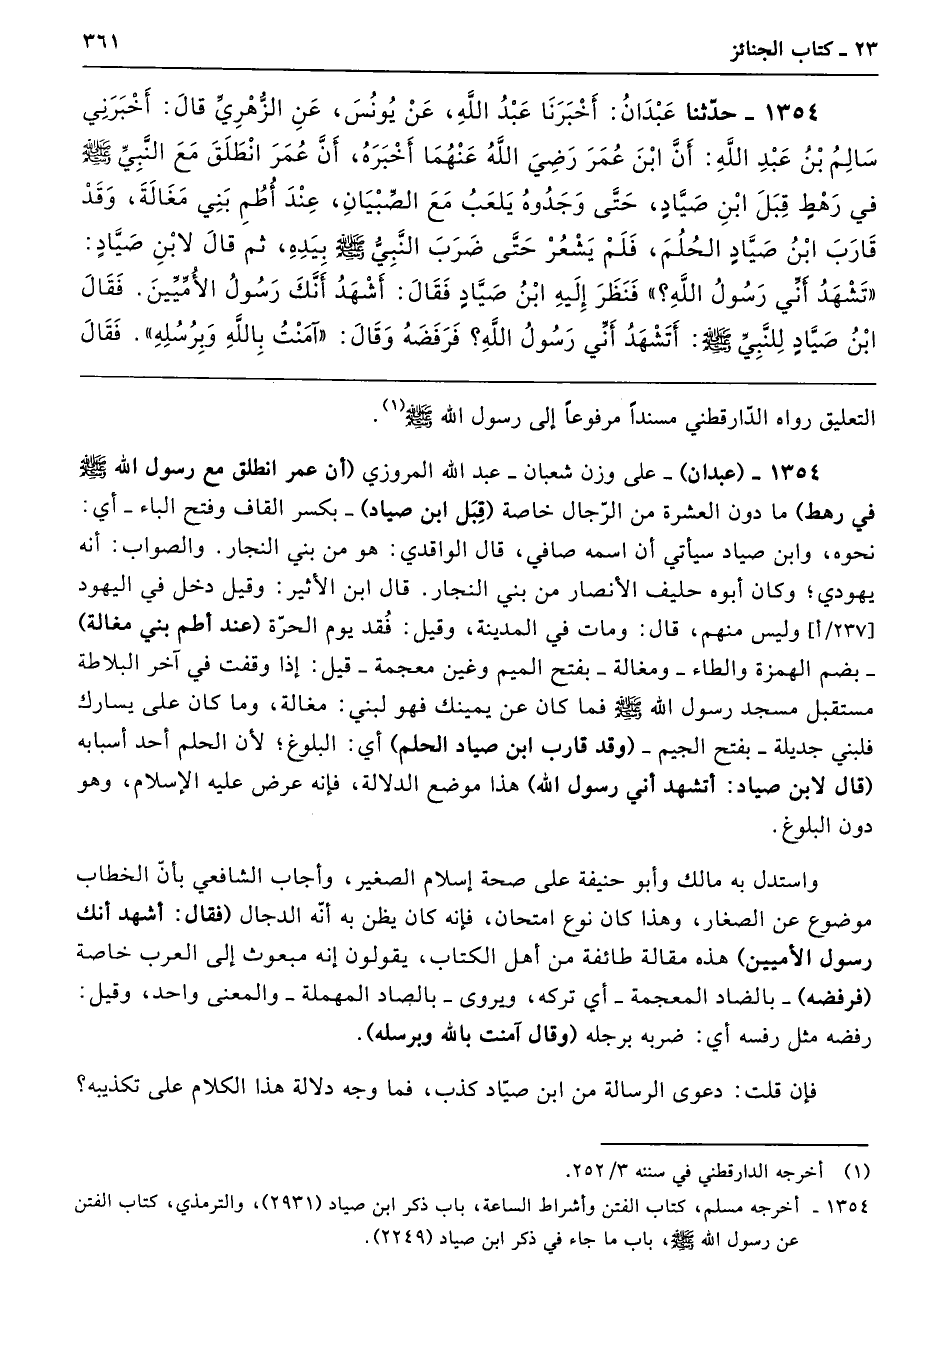 ٢٣ ـ كتاب الجنائز
٣٦١
١٣٥٤ ـ حدّثنا عَبْدَانُ: أَخْبَرَنَا عَبْدُ اللَّهِ، عَنْ يُونُسَ، عَنِ الزُّهْرِيِّ قالَ: أَخْبَرَنِي
سَالِمُ بْنُ عَبْدِ اللَّهِ: أَنَّ ابْنَ عُمَرَ رَضِيَ اللَّهُ عَنْهُمَا أَخْبَرَهُ، أَنَّ عُمَرَ انْطَلَقَ مَعَ النَّبِيِّ ﷺ
في رَهْطٍ قِبَلَ ابْنِ صَيَّادٍ، حَتَّى وَجَدُوهُ يَلعَبُ مَعَ الصِّبْيَانِ، عِنْدَ أُطُمِ بَنِي مَغَالَةَ، وَقَدْ
قَارَبَ ابْنُ صَيَّادٍ الحُلُمَ، فَلَمْ يَشْعُرْ حَتَّى ضَرَبَ النَّبِيُّ ﷺ بِيَدِهِ، ثم قالَ لابْنِ صَيَّادٍ:
«تَشْهَدُ أَنِّي رَسُولُ اللَّهِ؟» فَنَظَرَ إِلَيهِ ابْنُ صَيَّادٍ فَقَالَ: أَشْهَدُ أَنَّكَ رَسُولُ الأُمِّيِّينَ. فَقَالَ
ابْنُ صَيَّادٍ لِلنَّبِيِّ ﷺ: أَتَشْهَدُ أَنِّي رَسُولُ اللَّهِ؟ فَرَفَضَهُ وَقَالَ: «آمَنْتُ بِاللَّهِ وَبِرُسُلِهِ». فَقَالَ
التعليق رواه الدّارقطني مسنداً مرفوعاً إلى رسول الله ﷺ(١).
١٣٥٤ ـ (عبدان) ـ على وزن شعبان ـ عبد الله المروزي (أن عمر انطلق مع رسول الله ﷺ
في رهط) ما دون العشرة من الرّجال خاصة (قِبَل ابن صياد) ـ بكسر القاف وفتح الباء ـ أي:
نحوه، وابن صياد سيأتي أن اسمه صافي، قال الواقدي: هو من بني النجار. والصواب: أنه
يهودي؛ وكان أبوه حليف الأنصار من بني النجار. قال ابن الأثير: وقيل دخل في اليهود
[٢٣٧/أ] وليس منهم، قال: ومات في المدينة، وقيل: فُقد يوم الحرّة (عند أطم بني مغالة)
ـ بضم الهمزة والطاء ـ ومغالة ـ بفتح الميم وغين معجمة ـ قيل: إذا وقفت في آخر البلاطة
مستقبل مسجد رسول الله ﷺ فما كان عن يمينك فهو لبني: مغالة، وما كان على يسارك
فلبني جديلة ـ بفتح الجيم ـ (وقد قارب ابن صياد الحلم) أي: البلوغ؛ لأن الحلم أحد أسبابه
(قال لابن صياد: أتشهد أني رسول الله) هذا موضع الدلالة، فإنه عرض عليه الإسلام، وهو
دون البلوغ.
واستدل به مالك وأبو حنيفة على صحة إسلام الصغير، وأجاب الشافعي بأنّ الخطاب
موضوع عن الصغار، وهذا كان نوع امتحان، فإنه كان يظن به أنّه الدجال (فقال: أشهد أنك
رسول الأميين) هذه مقالة طائفة من أهل الكتاب، يقولون إنه مبعوث إلى العرب خاصة
(فرفضه) ـ بالضاد المعجمة ـ أي تركه، ويروى ـ بالصاد المهملة ـ والمعنى واحد، وقيل:
رفضه مثل رفسه أي: ضربه برجله (وقال آمنت بالله وبرسله).
فإن قلت: دعوى الرسالة من ابن صيّاد كذب، فما وجه دلالة هذا الكلام على تكذيبه؟
(١) أخرجه الدارقطني في سننه ٣/ ٢٥٢.
١٣٥٤ ـ أخرجه مسلم، كتاب الفتن وأشراط الساعة، باب ذكر ابن صياد (٢٩٣١)، والترمذي، كتاب الفتن
عن رسول الله ﷺ، باب ما جاء في ذكر ابن صياد (٢٢٤٩).